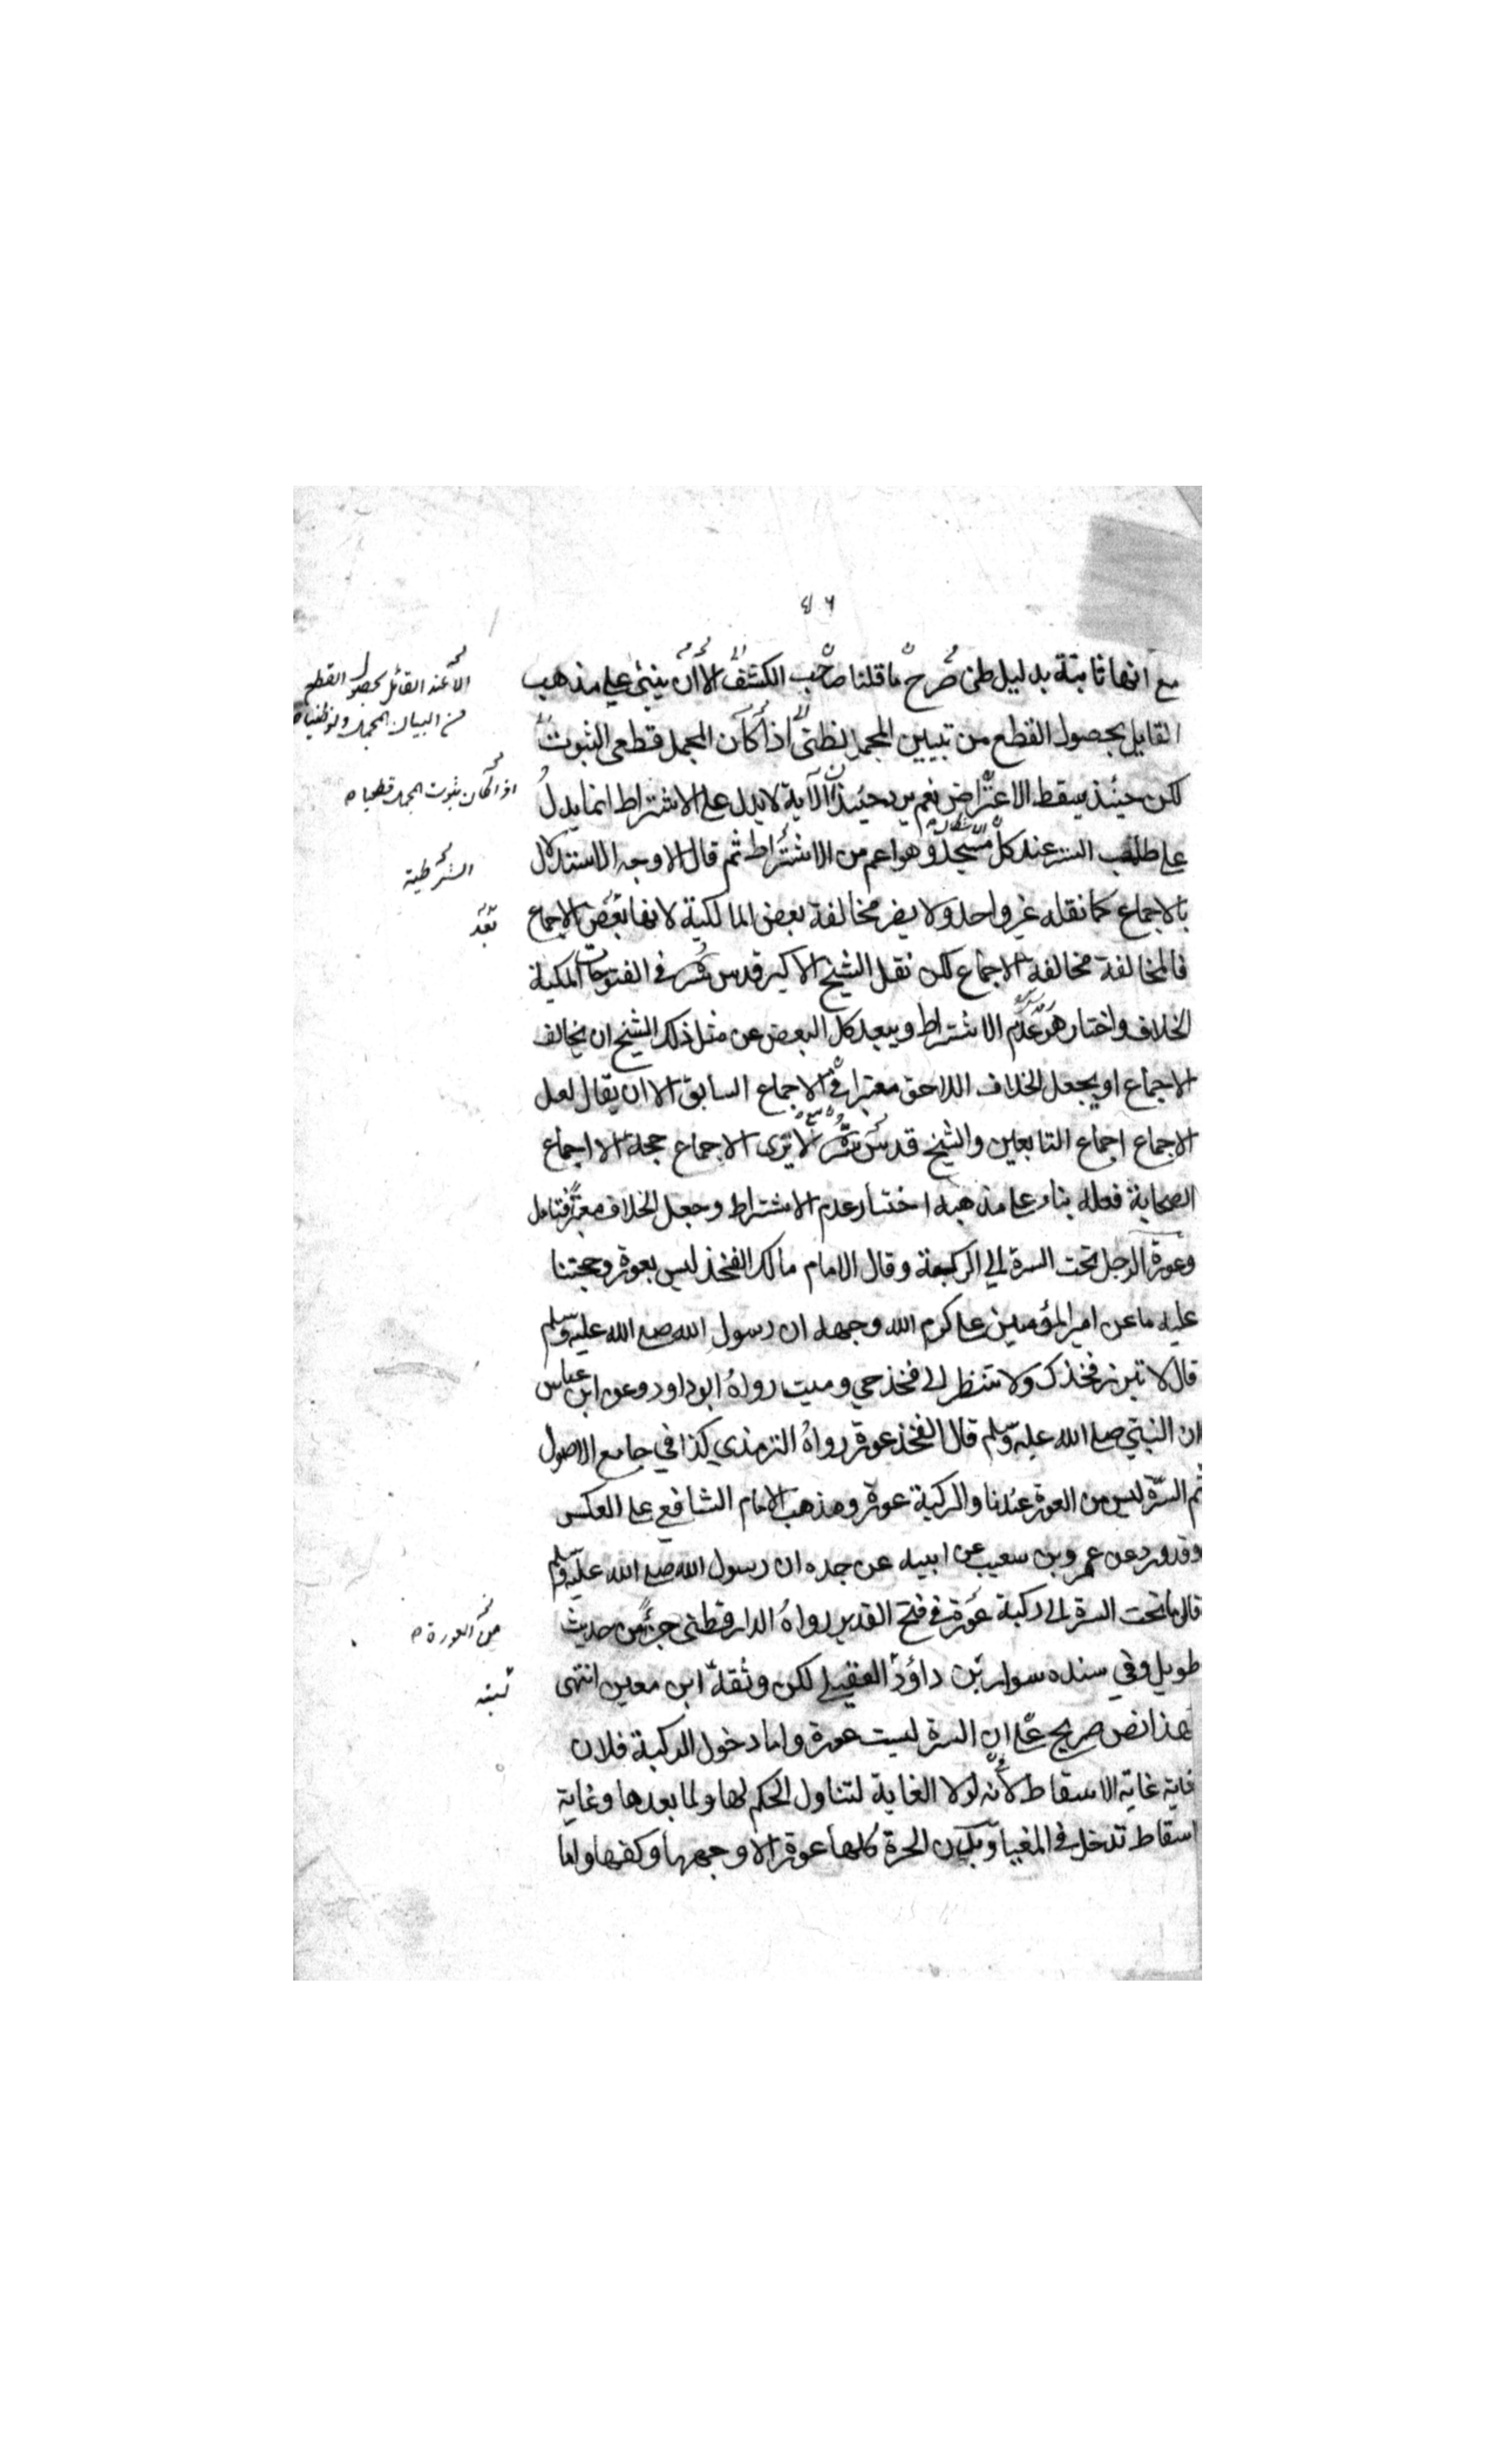 مع انها ثابتة بدليل ظن صرح ما قلنا صاحب الكشف الا ان ينبئ على مذهب
القايل بحصول القطع من تبيين المجمل بظني اذا كان المجمل قطعى الثبوت
لكن حينئذ يسقط الاعتراض نعم يرد حينئذ ان الآية لا يدل على الاشتراط انما يدل
على طلب الستر عند كل مسجد وهو اعم من الاشتراط ثم قال الاوجه الاستدلال
بالاجماع كما نقله غير واحد ولا يضر مخالفة بعض المالكية لانها بعض الاجماع
فالمخالفة مخالفة الاجماع لكن نقل الشيخ الاكبر قدس سره فى الفتوحات المكية
الخلاف واختار هو عدم الاشتراط ويبعد كل البعض عن مثل ذلك الشيخ ان يخالف
الاجماع او يجعل الخلاف اللاحق معتبرا فى الاجماع السابق الا ان يقال لعل
الاجماع اجماع التابعين والشيخ قدس سره لا يرى الاجماع حجة الا اجماع
الصحابة فعله بناء على مذهبه اختار عدم الاشتراط وجعل الخلاف معتبرا فتامل
وعورة الرجل تحت السرة الى الركبة وقال الامام مالك الفخذ ليس بعورة وحجتنا
عليه ما عن امير المؤمنين على كرم الله وجهه ان رسول الله صلى الله عليه وسلم
قال لا تبرز فخذك ولا تنظر الى فخذ حي وميت رواه ابو داود وعن ابن عباس
ان النبي صلى الله عليه وسلم قال الفخذ عورة رواه الترمذي كذا في جامع الاصول
ثم السرة ليس من العورة عندنا والركبة عورة ومذهب الامام الشافعي على العكس
وقد ورد عن عمرو بن سعيب عن ابيه عن جده ان رسول الله صلى الله عليه وسلم
قال ما تحت السرة الى ركبة عورة فى فتح القدير رواه الدارقطنى جزء من حديث
طويل وفي سنده سوار بن داؤد العقيلى لكن وثقه ابن معين انتهى
هذا نص صريح على ان السرة ليست عورة واما دخول الركبة فلان
غايته غاية الاسقاط لانه لولا الغاية لتناول الحكم لها ولما بعدها وغاية
اسقاط تدخل فى المغيا وبدن الحرة كلها عورة الا وجهها وكفها واما
الا عند القائل بحصول القطع
من البيان المجمل ولو ظنيا
اذا كان ثبوت المجمل قطعيا
الشرطية
بعد
من العورة